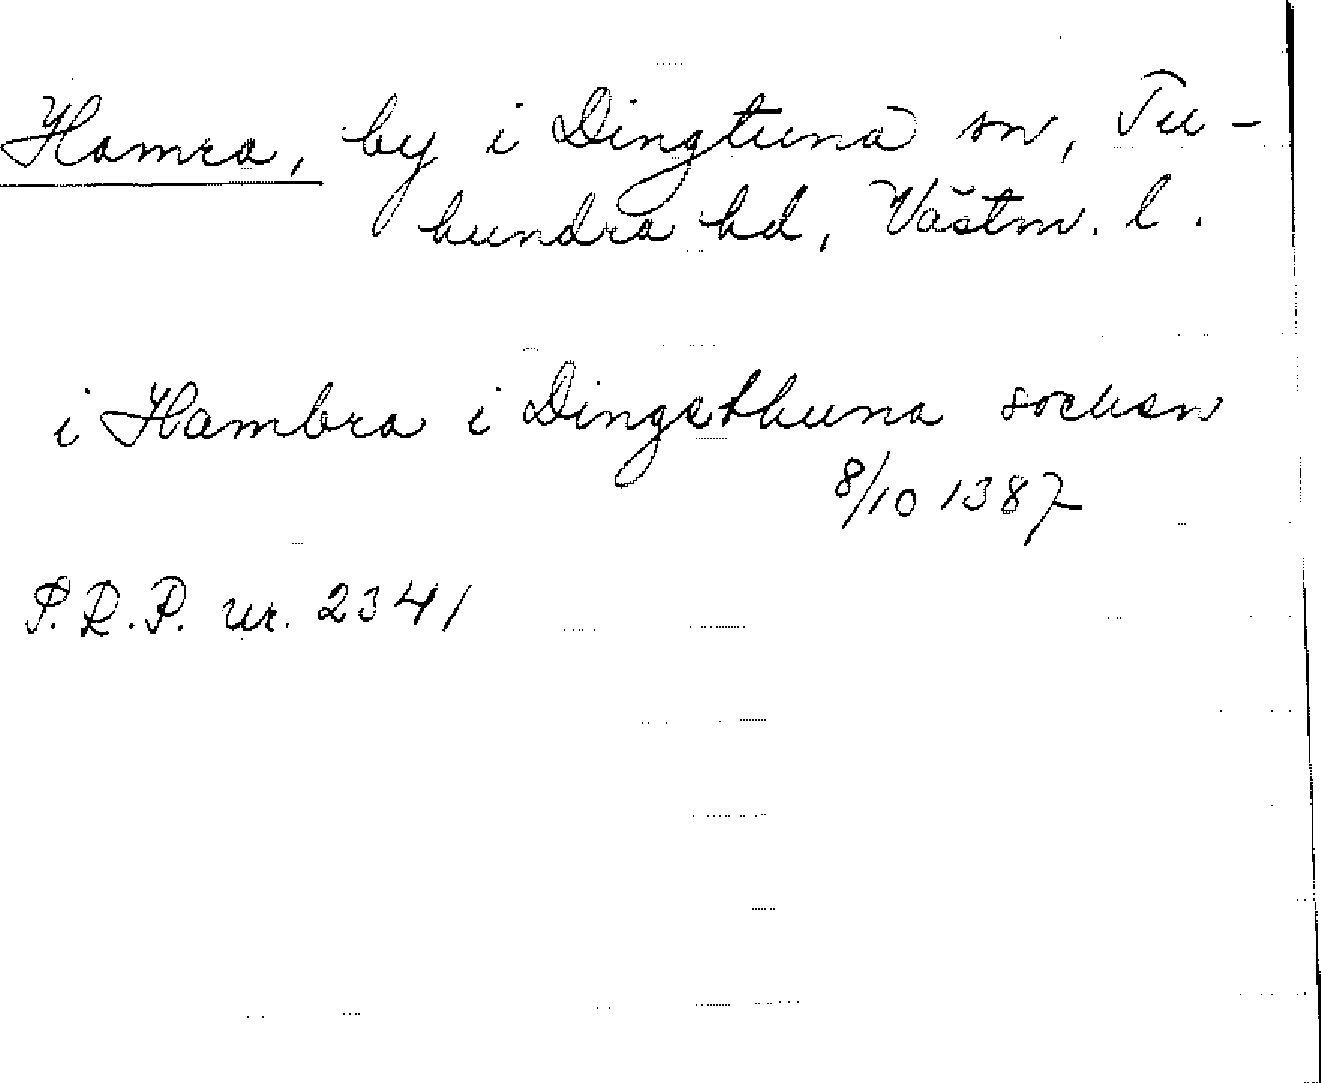 Hamra, by i Dingtuna sn, Tu-
hundra hd, Västm. l.
i Hambra i Dingxthuna socken
8/10 1387
P.R.P. nr. 2341